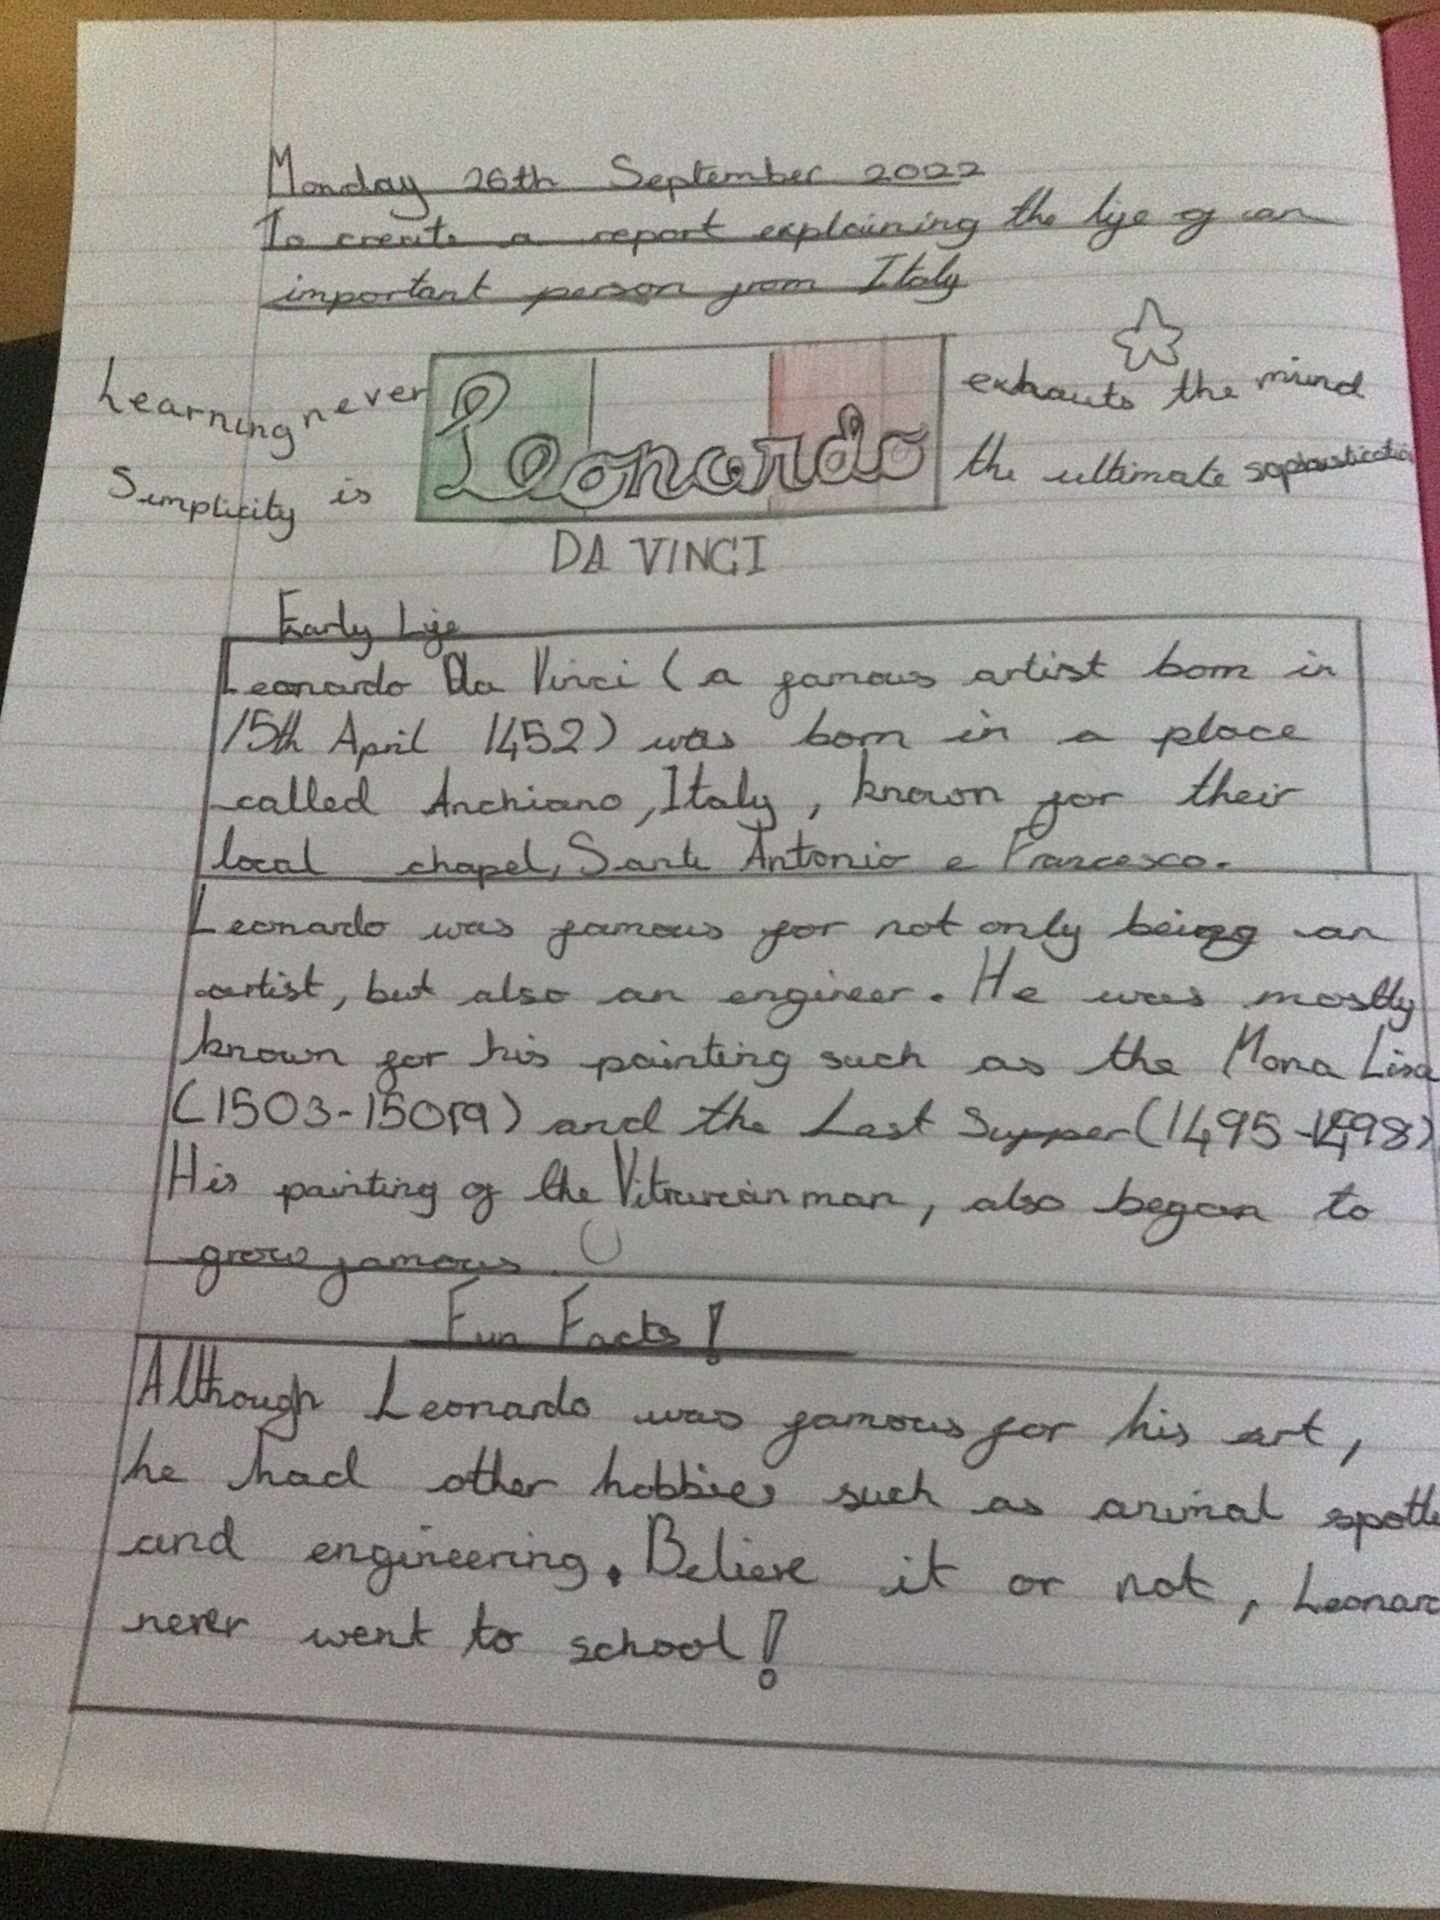 Monday 26th September 2022
To create a report explaining the life of an
important person from Italy
Learning never exhauts the mind
Leonardo
Simplicity is the ultimate
DA VINCI
Early Life
Leonardo Da Vinci (a famous artist born in
15th April 1452) was born in a place
called Anchiano, Italy, known for their
local chapel, Sante Antonio e Francesco.
Leonardo was famous for not only being an
artist, but also an engineer. He was mostly
known for his painting such as the Mona Lisa
(1503-1519) and the Last Supper (1495-1498)
His painting of the man, also began to
grow famous.
Fun Facts!
Although Leonardo was famous for his art,
he had other hobbies such as animal
and engineering. Believe it or not,
never went to school!